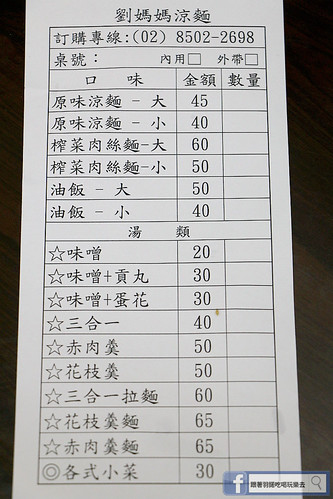 劉媽媽涼麵
訂購專線:(02) 8502-2698
桌號: 內用□ 外帶□
口 味 金額 數量
原味涼麵 - 大 45
原味涼麵 - 小 40
榨菜肉絲麵-大 60
榨菜肉絲麵-小 50
油飯 - 大 50
油飯 - 小 40
湯 類
☆味噌 20
☆味噌+貢丸 30
☆味噌+蛋花 30
☆三合一 40
☆赤肉羹 50
☆花枝羹 50
☆三合一拉麵 60
☆花枝羹麵 65
☆赤肉羹麵 65
◎各式小菜 30
f 跟著羽諾吃喝玩樂去